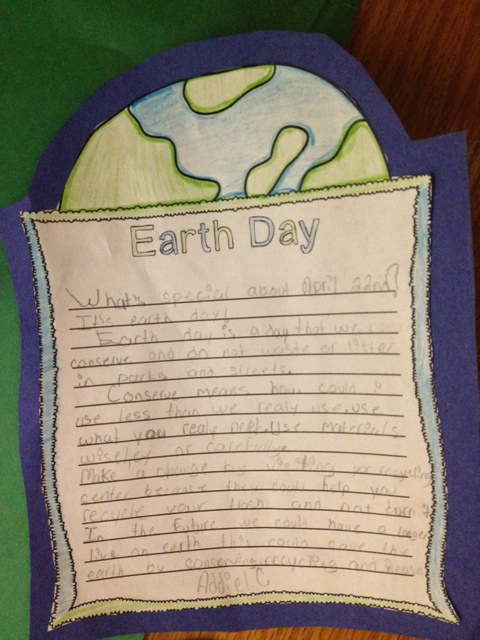 Earth Day
What's special about April 22nd?
It's earth day!
Earth day is a day that we
conserve and do not waste or litter
in parks and streets.
Conserve means how could i
use less than we realy use, use
what you realy need. Use materials
wiseley or carefully.
Make a change by your recycling
center because they could help you
recycle your trash and not burn it
In the future we could have a longer
live on earth this could save the
earth by conserving, recycling and
Addiel C